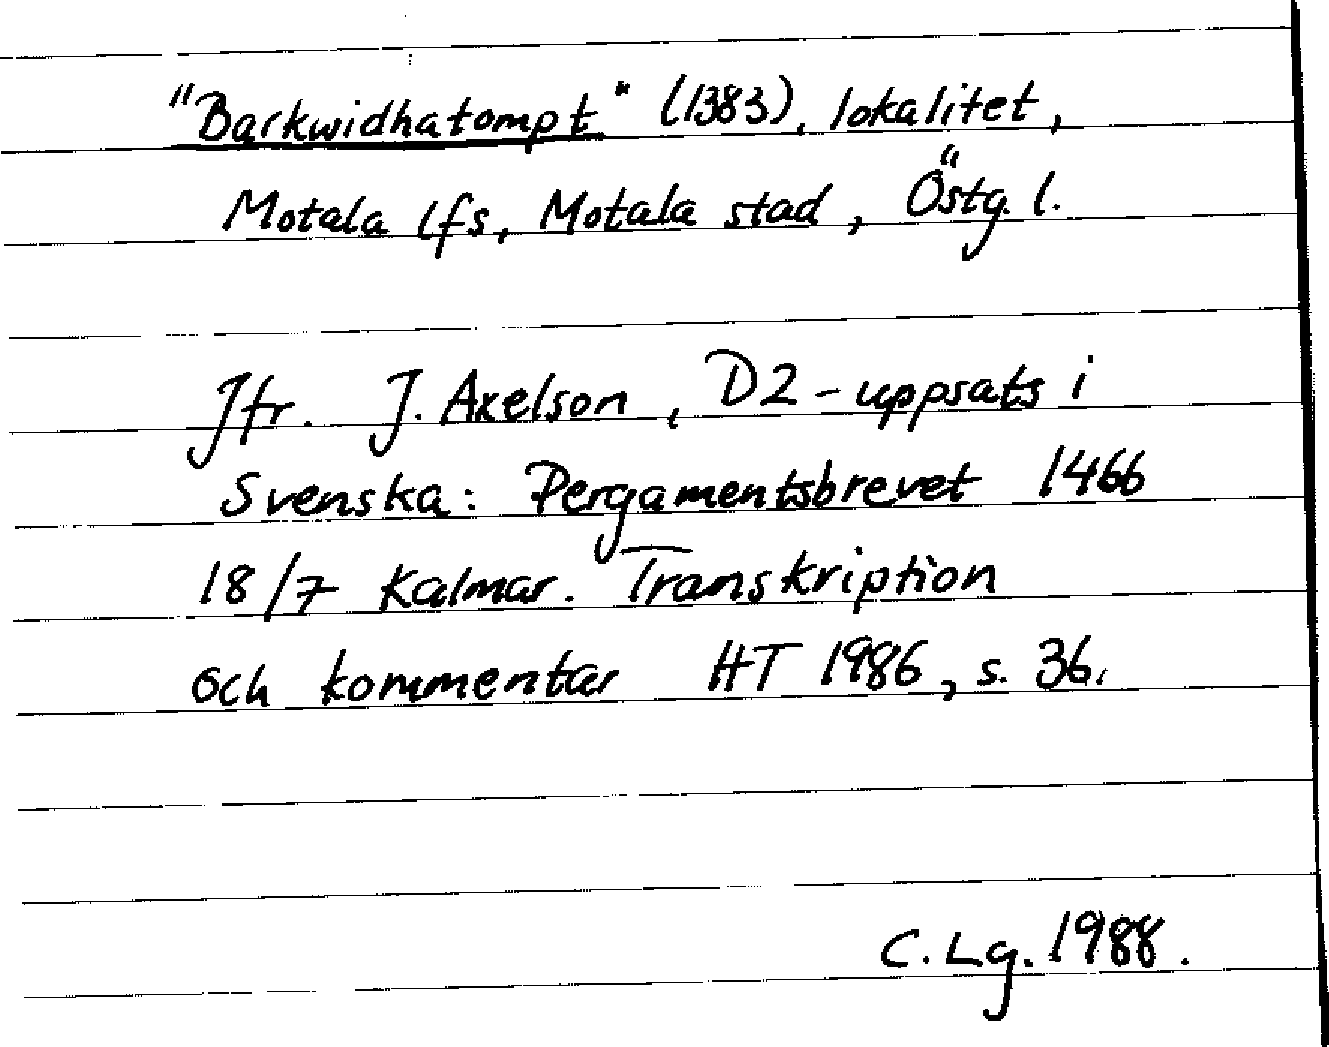 "Barkwidhatompt" (1383), lokalitet,
Motala lfs, Motala stad, Östg l.
Jfr. J. Axelson, D2-uppsats i
Svenska: Pergamentsbrevet 1466
18/7 Kalmar. Transkription
och kommentar HT 1986, s. 36.
C. Lg. 1988.